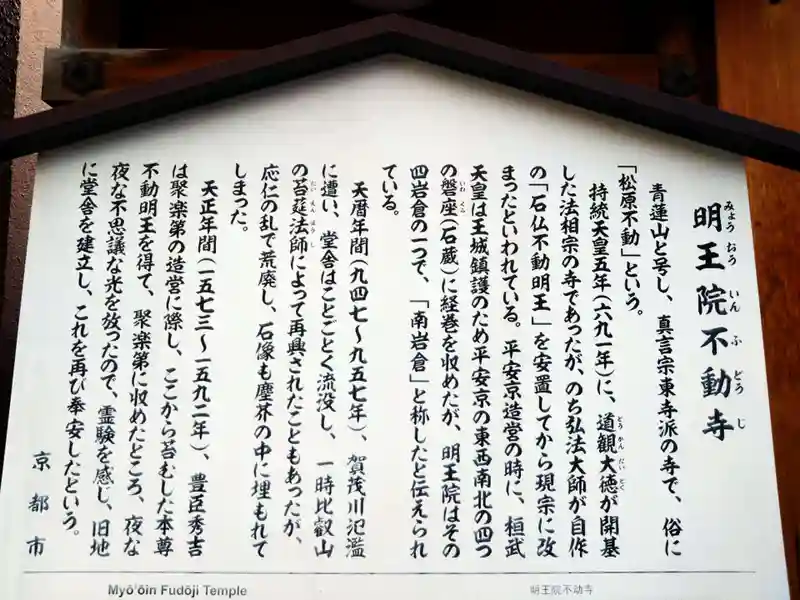 明王院不動寺
みょう おう いん ふ どう じ
青蓮山と号し、真言宗東寺派の寺で、俗に
「松原不動」という。
持統天皇五年(六九一年)に、道観大徳が開基
どう かん だい とく
した法相宗の寺であったが、のち弘法大師が自作
の「石仏不動明王」を安置してから現宗に改
まったといわれている。平安京造営の時に、桓武
天皇は王城鎮護のため平安京の東西南北の四つ
の磐座(石蔵)に経巻を収めたが、明王院はその
いわ くら
四岩倉の一つで、「南岩倉」と称したと伝えられ
ている。
天暦年間(九四七〜九五七年)、賀茂川氾濫
に遭い、堂舎はことごとく流没し、一時比叡山
の苔莚法師によって再興されたこともあったが、
たい えん ほう し
応仁の乱で荒廃し、石像も塵芥の中に埋もれて
しまった。
天正年間(一五七三〜一五九二年)、豊臣秀吉
は聚楽第の造営に際し、ここから苔むした本尊
不動明王を得て、聚楽第に収めたところ、夜な
夜な不思議な光を放ったので、霊験を感じ、旧地
に堂舎を建立し、これを再び奉安したという。
京都市
Myō'ōin Fudōji Temple
明王院不动寺